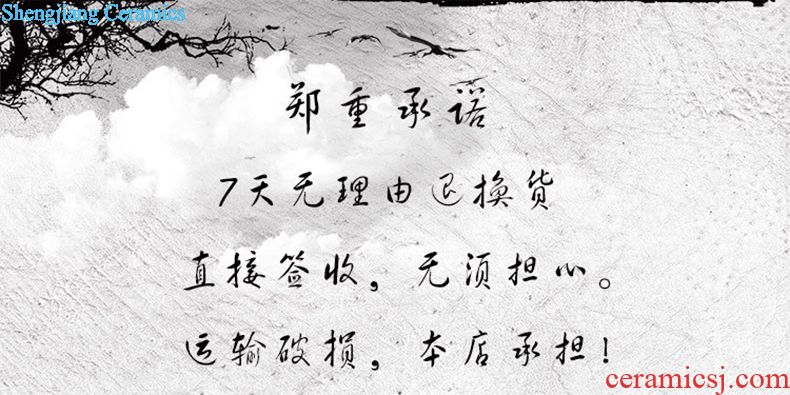 Shengjiang Ceramics
郑重承诺
7天无理由退换货
直接签收，无须担心。
运输破损，本店承担！
ceramicsj.com